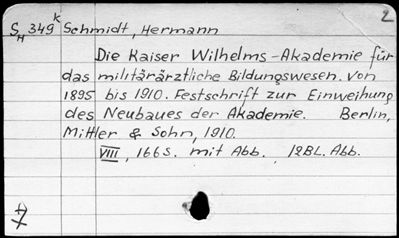 2
SH 349k Schmidt, Hermann
Die Kaiser Wilhelms-Akademie für
das militärärztliche Bildungswesen. Von
1895 bis 1910. Festschrift zur Einweihung
des Neubaues der Akademie. Berlin,
Mittler & Sohn, 1910.
VIII, 166 S. mit Abb., 12 BL. Abb.